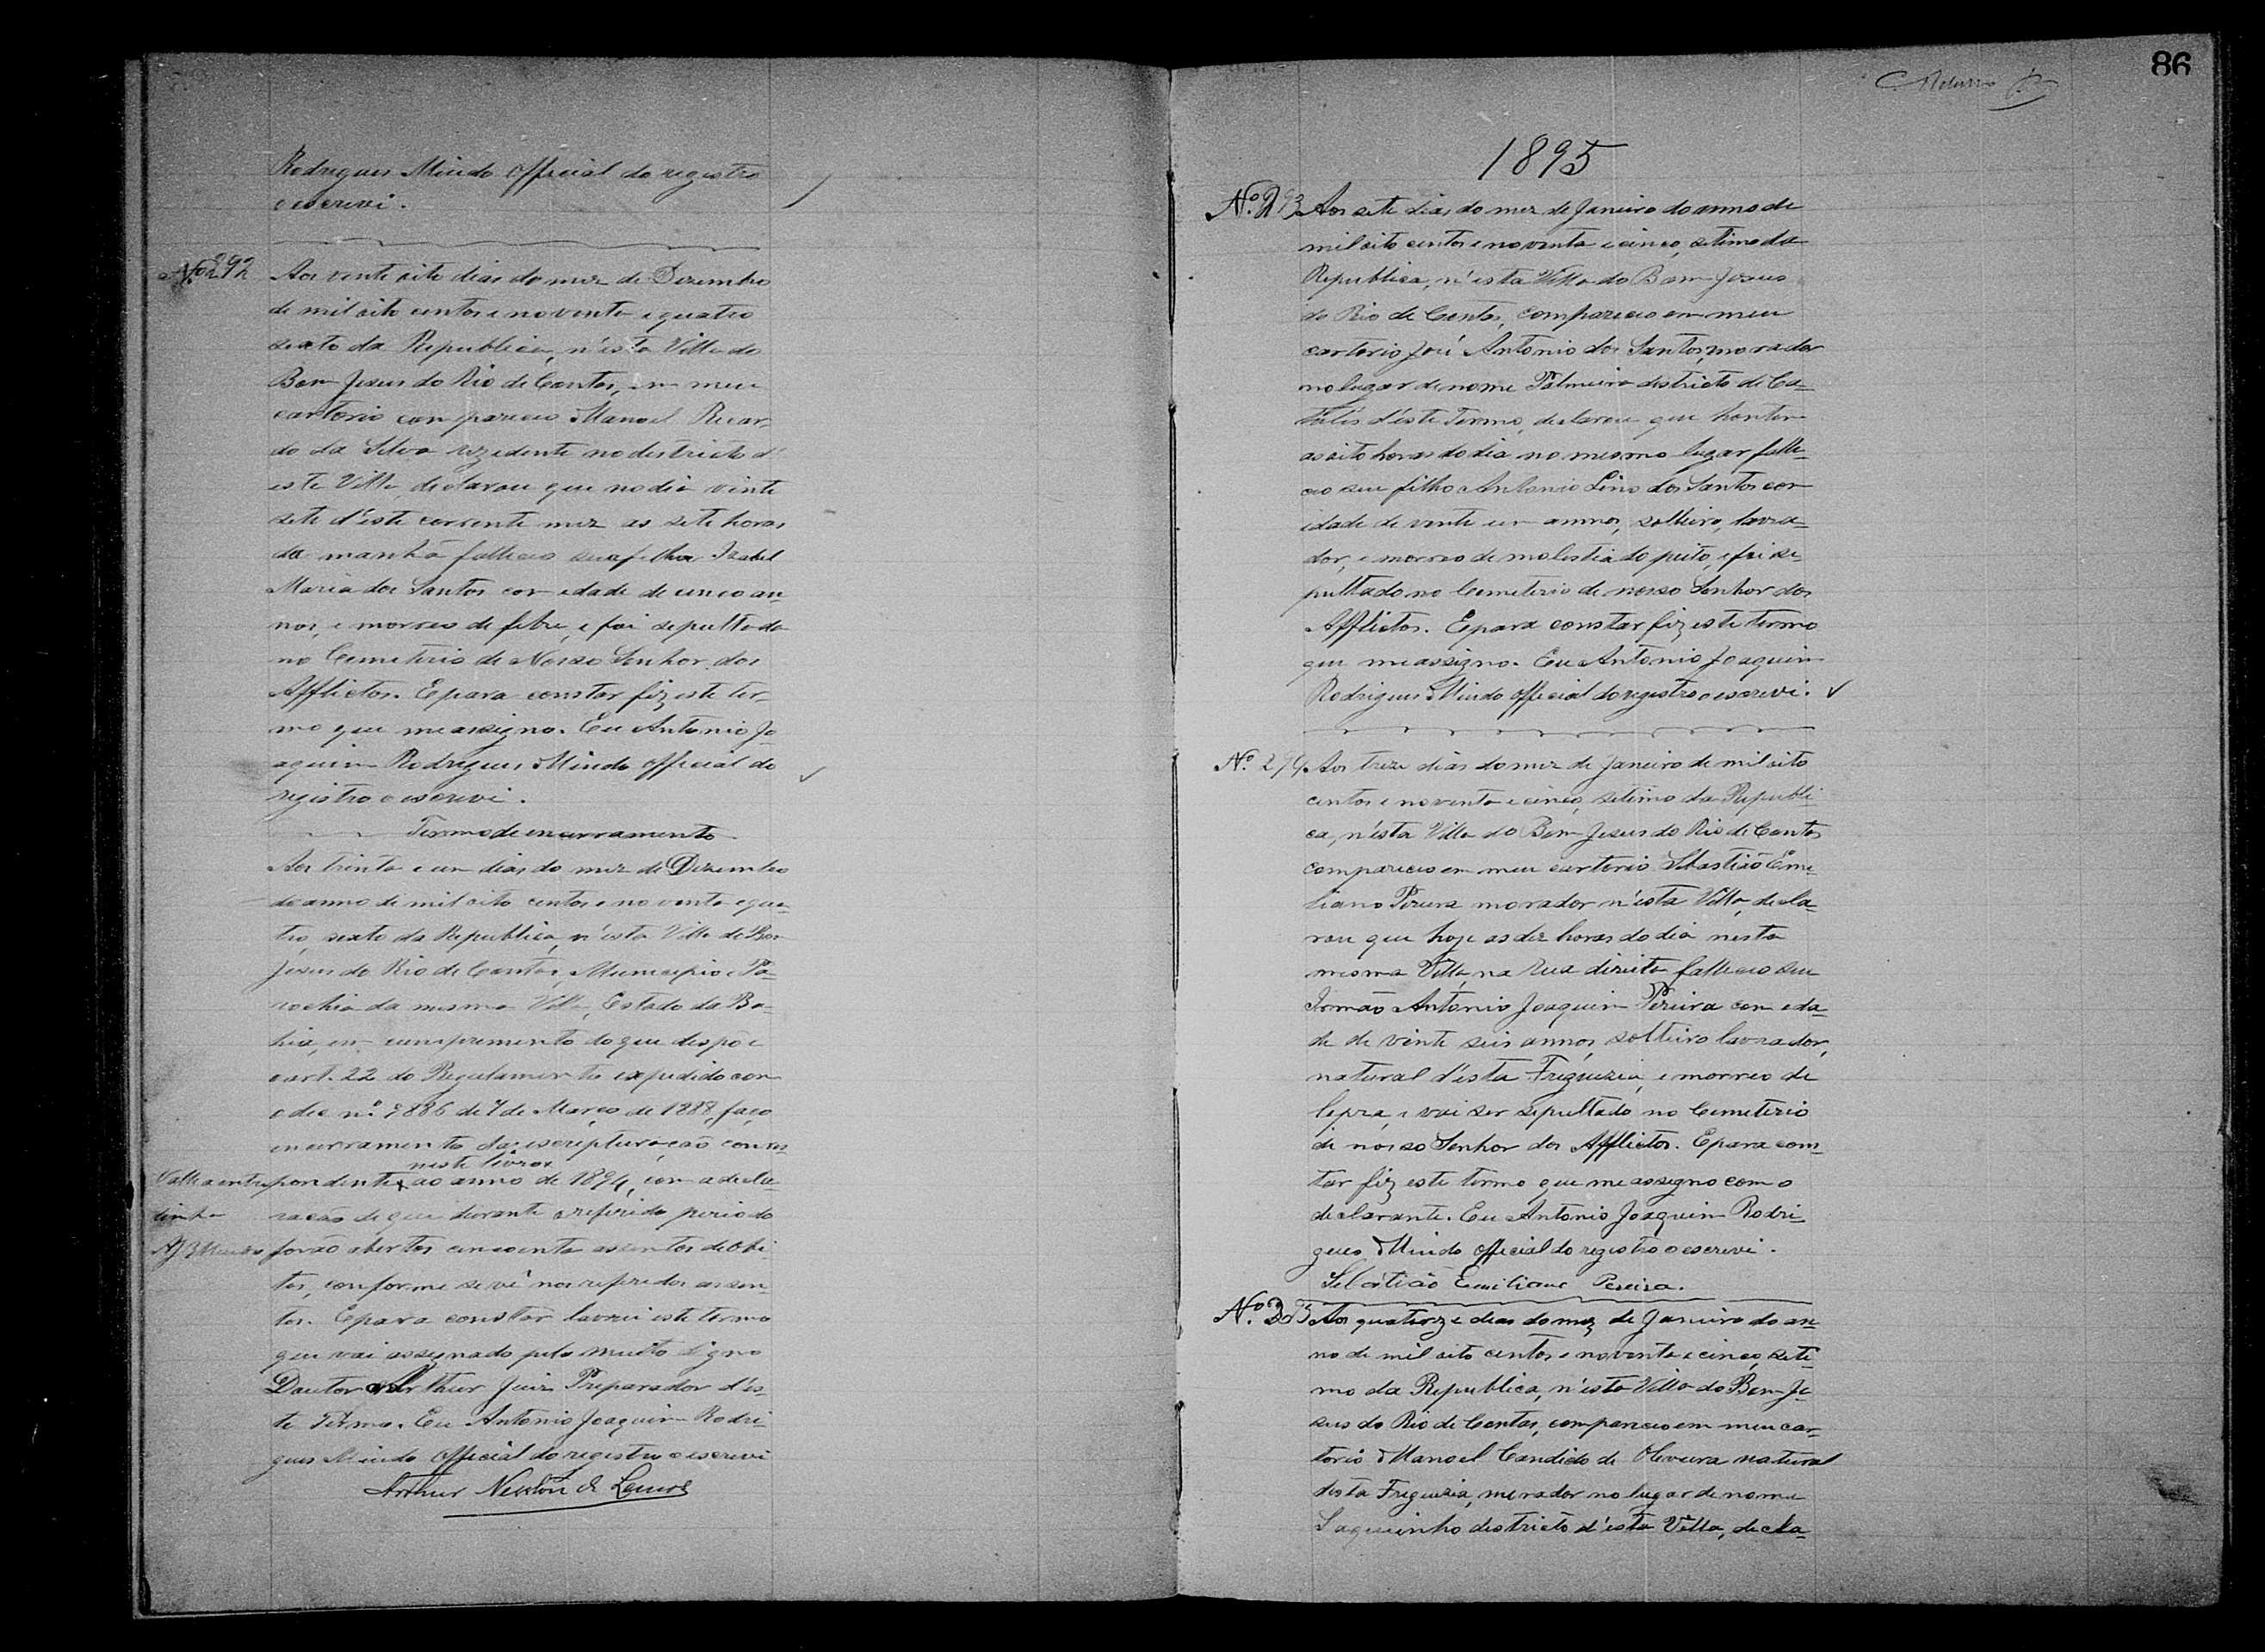 Rodrigues Mindo official do registro
o escrevi.
No. 292
Aos vente oito dias do mez de Dezembro
de mil oito centos e noventa e quatro
sexto da Republica, n'esta Villa do
Bom Jesus do Rio de Contas, em meu
cartorio compareceo Manoel Ricar-
do da Silva rezedente no destricto d'
esta Villa, declarou que no dia vinte
sete d'este corrente mez as sete horas
da manhã falleceo sua filha Izabel
Maria dos Santos com edade de cinco an-
nos, e morreo de febre, e foi sepultada
no Cemeterio de Nosso Senhor dos
Afflictos. E para constar fiz este ter-
mo que me assigno. Eu Antonio Jo
aquim Rodrigues Mindo official do
registro o escrevi.
Termo de encerramento
Aos trinta e um dias do mez de Dezembro
do anno de mil oito centos e noventa e qua-
tro, sexto da Republica, n'esta Villa de Bom
Jesus do Rio de Contas, Municipio e Pa-
rochia da mesma Villa, Estado da Ba-
hia, em cumprimento do que dispõe
o art. 22 do Regulamento expedido com
o dec. n.º 9886 de 7 de Março de 1888, faço
encerramento da escripturação corres-
neste livro
Valha entre pondente ao anno de 1894, com a decla-
linha ração de que durante o referido periodo
A J R Mindo forão abertos cincoenta assentos de obi
tos, conforme se vê nos referidos assen
tos. E para constar lavrei este termo
que vai assignado pelo muito digno
Doutor Arthur Juiz Preparador d'es-
te Termo. Eu Antonio Joaquim Rodri-
gues Mindo official do registro o escrevi
Arthur Newton de Lemos
86
1895
No. 293 Aos sete dias do mez de Janeiro do anno de
mil oito centos e noventa e cinco, setimo da
Republica, n'esta Villa do Bom Jesus
do Rio de Contas, compareceo em meu
cartorio José Antonio dos Santos, morador
no lugar de nome Palmeira districto de Ca-
tulés d'este Termo, declarou que hontem
as oito horas do dia no mesmo lugar falle-
ceo seu filho Antonio Lino dos Santos com
idade de vente um annos, solteiro, lavra-
dor, e morreo de molestia do peito, e foi se-
pultado no Cemeterio de nosso Senhor dos
Afflictos. E para constar fiz este termo
que me assigno. Eu Antonio Joaquim
Rodrigues Mindo official do registro o escrevi.
No. 294 Aos treze dias do mez de Janeiro de mil oito
centos e noventa e cinco, setimo da Republi
ca, n'esta Villa do Bom Jesus do Rio de Contas
compareceo em meu cartorio Sebastião Emi-
liano Pereira morador n'esta Villa, decla-
rou que hoje as dez horas do dia nesta
mesma Villa, na Rua direita falleceo seu
Irmão Antonio Joaquim Pereira com eda-
de de vinte seis annos, solteiro lavrador,
natural d'esta Freguezia, e morreo de
lepra, e vai ser sepultado no Cemeterio
de nosso Senhor dos Afflictos. E para cons-
tar fiz este termo que me assigno com o
declarante. Eu Antonio Joaquim Rodri
gues Mindo official do registro o escrevi.
Sebastião Emiliano Pereira.
Aos quatorze dias do mez de Janeiro do an-
no de mil oito centos e noventa e cinco, seti-
mo da Republica, n'esta Villa do Bom Je
sus do Rio de Contas, compareceo em meu car-
torio Manoel Candido de Oliveira natural
desta Freguezia, morador no lugar de nome
Saquinho destricto d'esta Villa, decla-